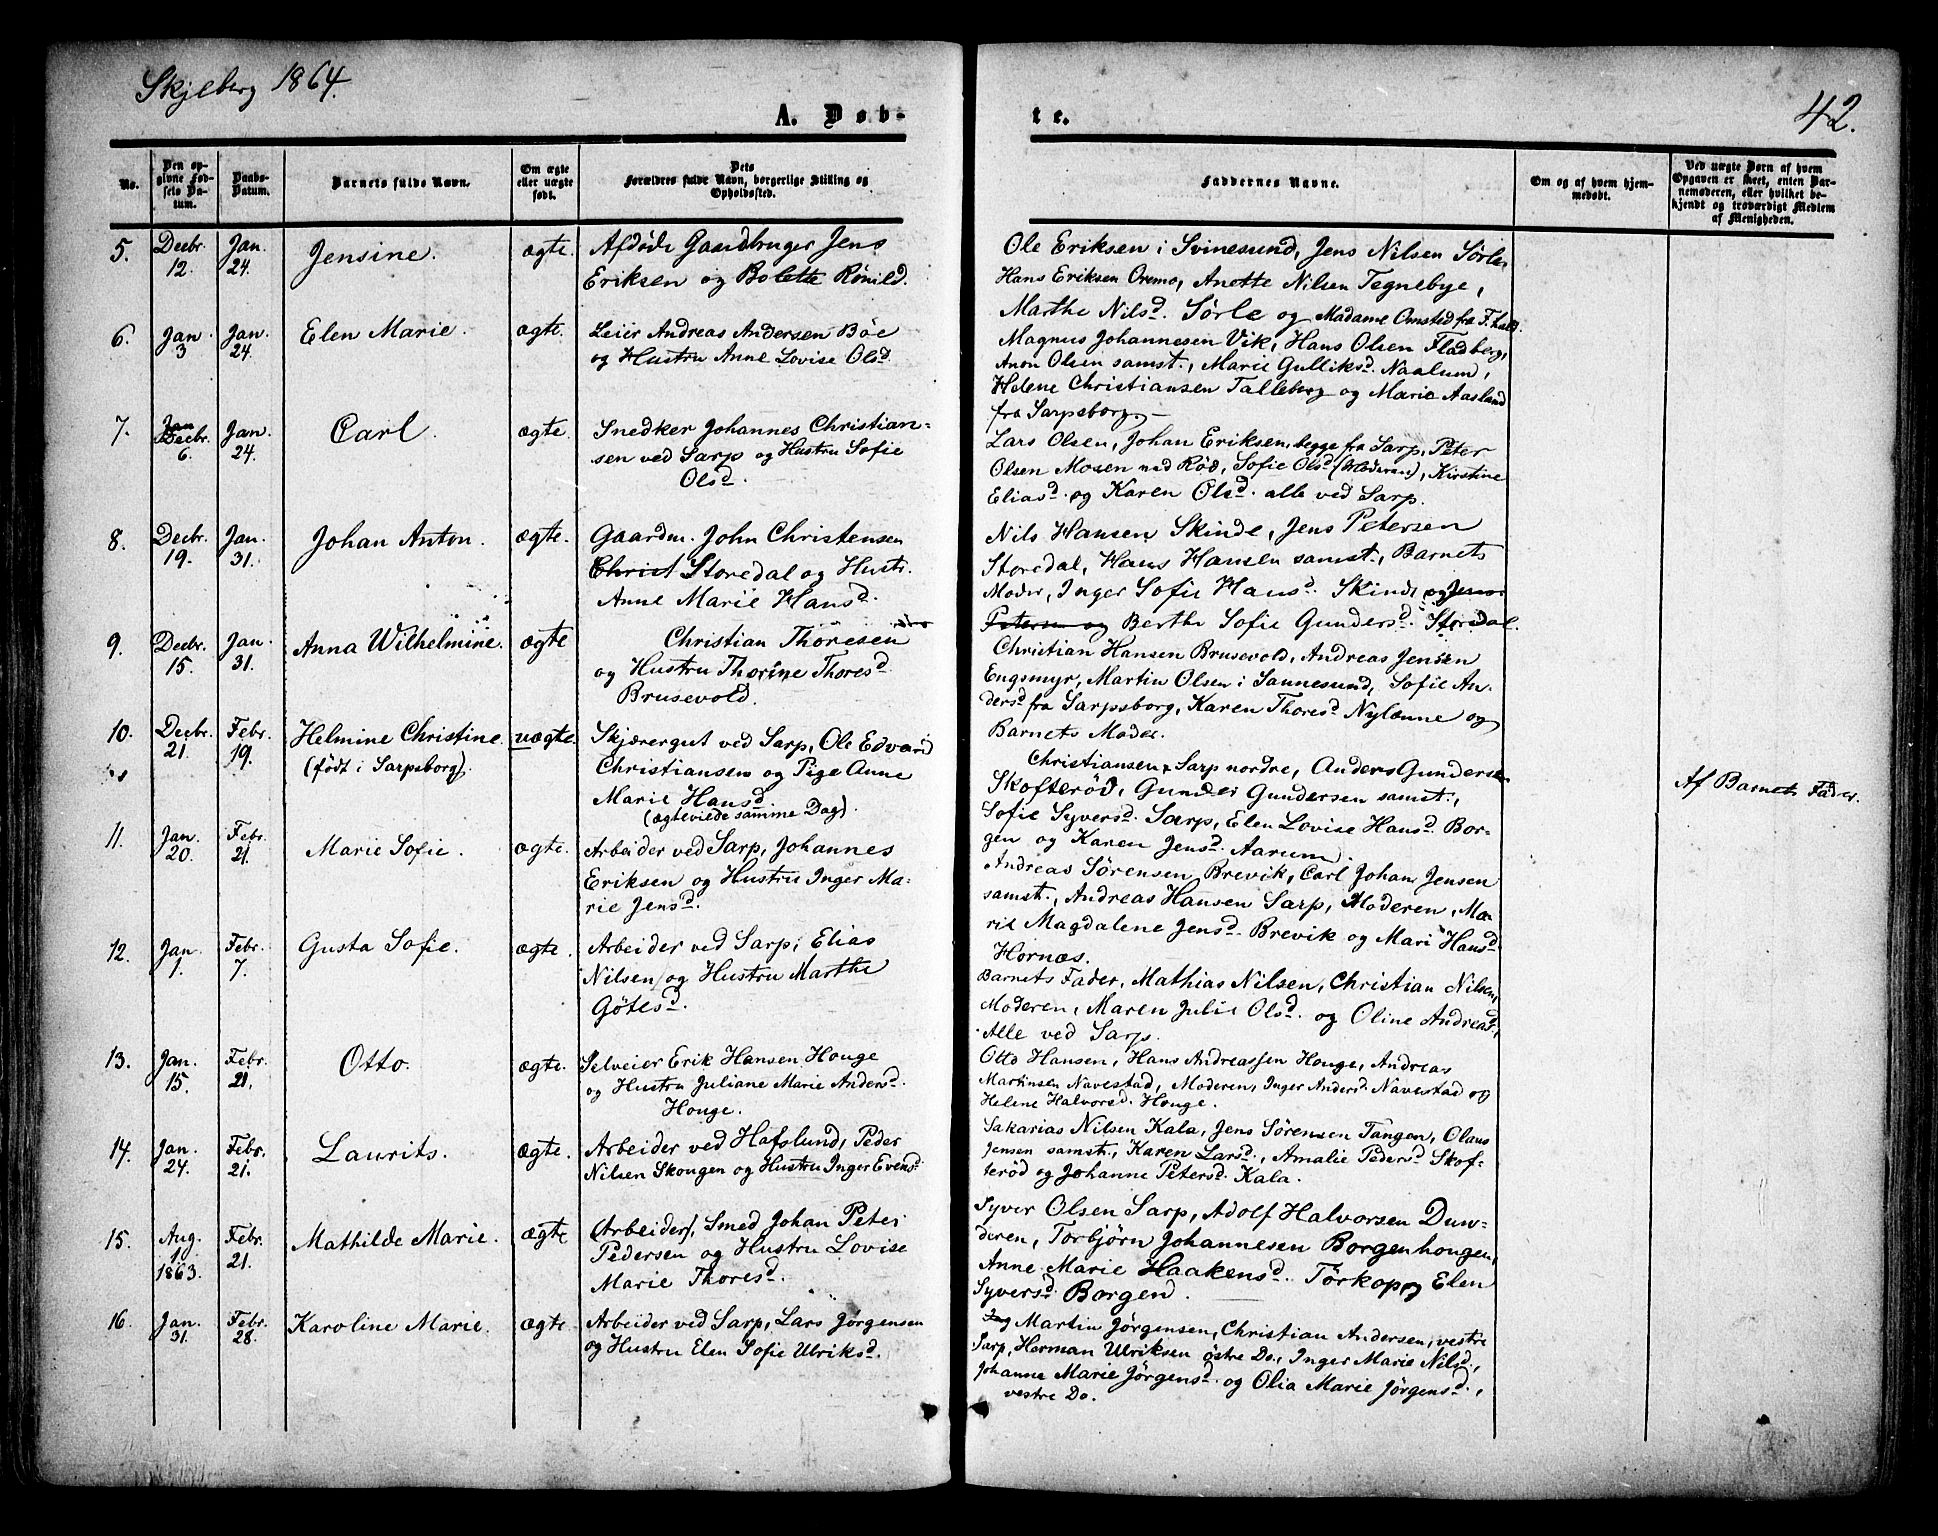 Skjeberg 1864.
42.
A. Døb-
te.
No.
Den opgivne Fødsels Datum.
Daabs-Datum.
Barnets fulde Navn.
Om ægte eller uægte født.
Dets Forældres fulde Navn, borgerlige Stilling og Opholdssted.
Faddernes Navne.
Om og af hvem hjemmedøbt.
Ved uægte Børn af hvem Opgaven er skeet, enten Barnemoderen, eller hvilket bekjendt og troværdigt Medlem af Menigheden.
5. Decbr. 12. Jan. 24. Jensine. ægte.
Afdøde Gaardbruger Jens
Eriksen og Bolette Rømild.
Ole Eriksen i Svinesund, Jens Nilsen Sørle,
Hans Eriksen Oremo, Anette Nilsen Tegnebye,
Marthe Nilsd. Sørle og Madame Omsted fra F.hald.
6. Jan. 3 Jan. 24. Elen Marie. ægte.
Leier Andreas Andersen Bøe
og Hustru Anne Lovise Olsd.
Magnus Johannesen Vik, Hans Olsen Fladberg,
Anon Olsen samst., Marie Gulliksd. Naalum,
Helene Christiansen Talleberg og Marie Aasland
fra Sarpsborg.-
7. Jan Decbr. 6. Jan. 24. Carl. ægte.
Snedker Johannes Christian-
sen ved Sarp og Hustru Sofie
Olsd.
Lars Olsen, Johan Eriksen, begge fra Sarp, Peter
Olsen Mosen ned Rød, Sofie Olsd (Moderen), Kirstine
Eliasd. og Karen Olsd. alle ved Sarp.
8. Decbr. 19. Jan. 31. Johan Anton. ægte.
Gaardm. John Christensen
Christ Storedal og Hustr.
Anne Marie Hansd.
Nils Hansen Skinde, Jens Petersen
Storedal, Hans Hansen samst., Barnets
Moder, Inger Sofie Hansd. Skinde og Jens
Petersen og Berthe Sofie Gundersd. Storedal.
9. Decbr. 15. Jan. 31. Anna Wilhelmine. ægte
Christian Thoresen
og Hustru Thorine Thoresd
Brusevold.
Christian Hansen Brusevold, Andreas Jensen
Engsmyr, Martin Olsen i Sannesund, Sofie An-
dersd fra Sarpsborg, Karen Thoresd Nylænne og
Barnets Moder.
10. Decbr. 21. Febr. 19. Helmine Christine. (født i Sarpsborg). uægte.
Skjærergut ved Sarp, Ole Edvard
Christiansen og Pige Anne
Marie Hansd.
(ægteviede samme Dag).
Christiansen Sarp nordre, Anders Gundersen
Skofterød, Gunder Gundersen samst.,
Sofie Syversd. Sarp, Elen Lovise Hansd. Bor-
gen og Karen Jensd. Aarum.
Af Barnets Fader.
11. Jan. 20. Febr. 21. Marie Sofie. ægte.
Arbeider ved Sarp, Johannes
Eriksen og Hustru Inger Ma-
rie Jensd.
Andreas Sørensen Brevik, Carl Johan Jensen
samst., Andreas Hansen Sarp, Moderen, Ma-
rie Magdalene Jensd. Brevik og Mari Hansd.
Hornæs.
12. Jan. 1. Febr. 7. Gusta Sofie. ægte.
Arbeider ved Sarp, Elias
Nilsen og Hustru Marthe
Götesd.
Barnets Fader, Mathias Nilsen, Christian Nilsen,
Moderen, Maren Julie Olsd. og Oline Andreasd,
Alle ved Sarp.
13. Jan. 15. Febr. 21. Otto. ægte.
Selveier Erik Hansen Houge
og Hustru Juliane Marie Andersd.
Houge.
Otto Hansen, Hans Andreassen Houge, Andreas
Martinsen Navestad, Moderen, Inger Andersd. Navestad og
Helene Halvorsd. Houge.
14. Jan. 24. Febr. 21. Laurits. ægte.
Arbeider ved Hafslund, Peder
Nilsen Skougen og Hustru Inger Evensd
Sakarias Nilsen Kala, Jens Sørensen Tangen, Olaus
Jensen samst., Karen Larsd., Amalie Pedersd Skof-
terød og Johanne Petersd. Kala.
15. Aug. 10. 1863. Febr. 21. Mathilde Marie. ægte
(Arbeider), Smed Johan Peter
Pedersen og Hustru Lovise
Marie Thoresd.
Syver Olsen Sarp, Adolf Halvorsen Dun-
deren, Torbjørn Johannesen Borgenhougen,
Anne Marie Haakensd. Törkop og Elen
Syversd. Borgen.
16. Jan. 31. Febr. 28. Karoline Marie. ægte
Arbeider ved Sarp, Lars Jørgensen
og Hustru Elen Sofie Ulriksd.
Martin Jørgensen, Christian Andersen, vestre
Sarp, Herman Ulriksen østre Do., Inger Marie Nilsd.,
Johanne Marie Jørgensd. og Olia Marie Jørgensd.,
vestre Do.